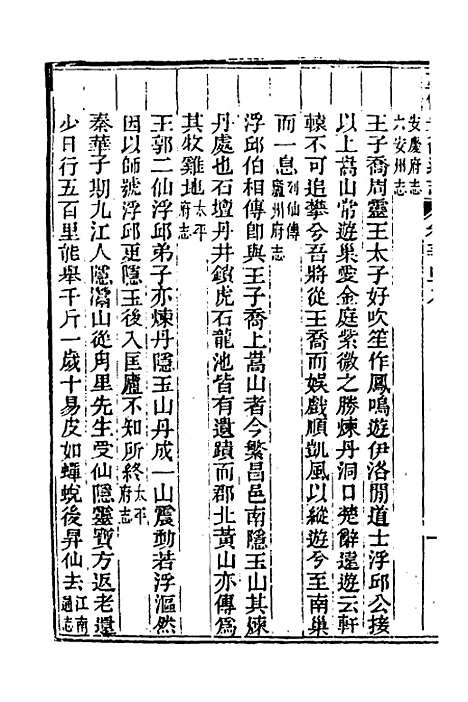 安慶府志
六安州志
王子喬周靈王太子好吹笙作鳳鳴遊伊洛閒道士浮邱公接
以上嵩山常遊巢愛金庭紫微之勝煉丹洞口楚辭遠遊云軒
轅不可追攀兮吾將從王喬而娛戲順凱風以縱遊兮至南巢
而一息列仙傳廬州府志
浮邱伯相傳卽與王子喬上嵩山者今繁昌邑南隱玉山其煉
丹處也石壇丹井鎖虎石龍池皆有遺蹟而郡北黃山亦傳爲
其牧雞地太平府志
王郭二仙浮邱弟子亦煉丹隱玉山丹成一山震動若浮漚然
因以師號浮邱更隱玉後入匡廬不知所終太平府志
秦華子期九江人隱灊山從甪里先生受仙隱靈寶方返老還
少日行五百里能舉千斤一歲十易皮如蟬蛻後昇仙去江南通志